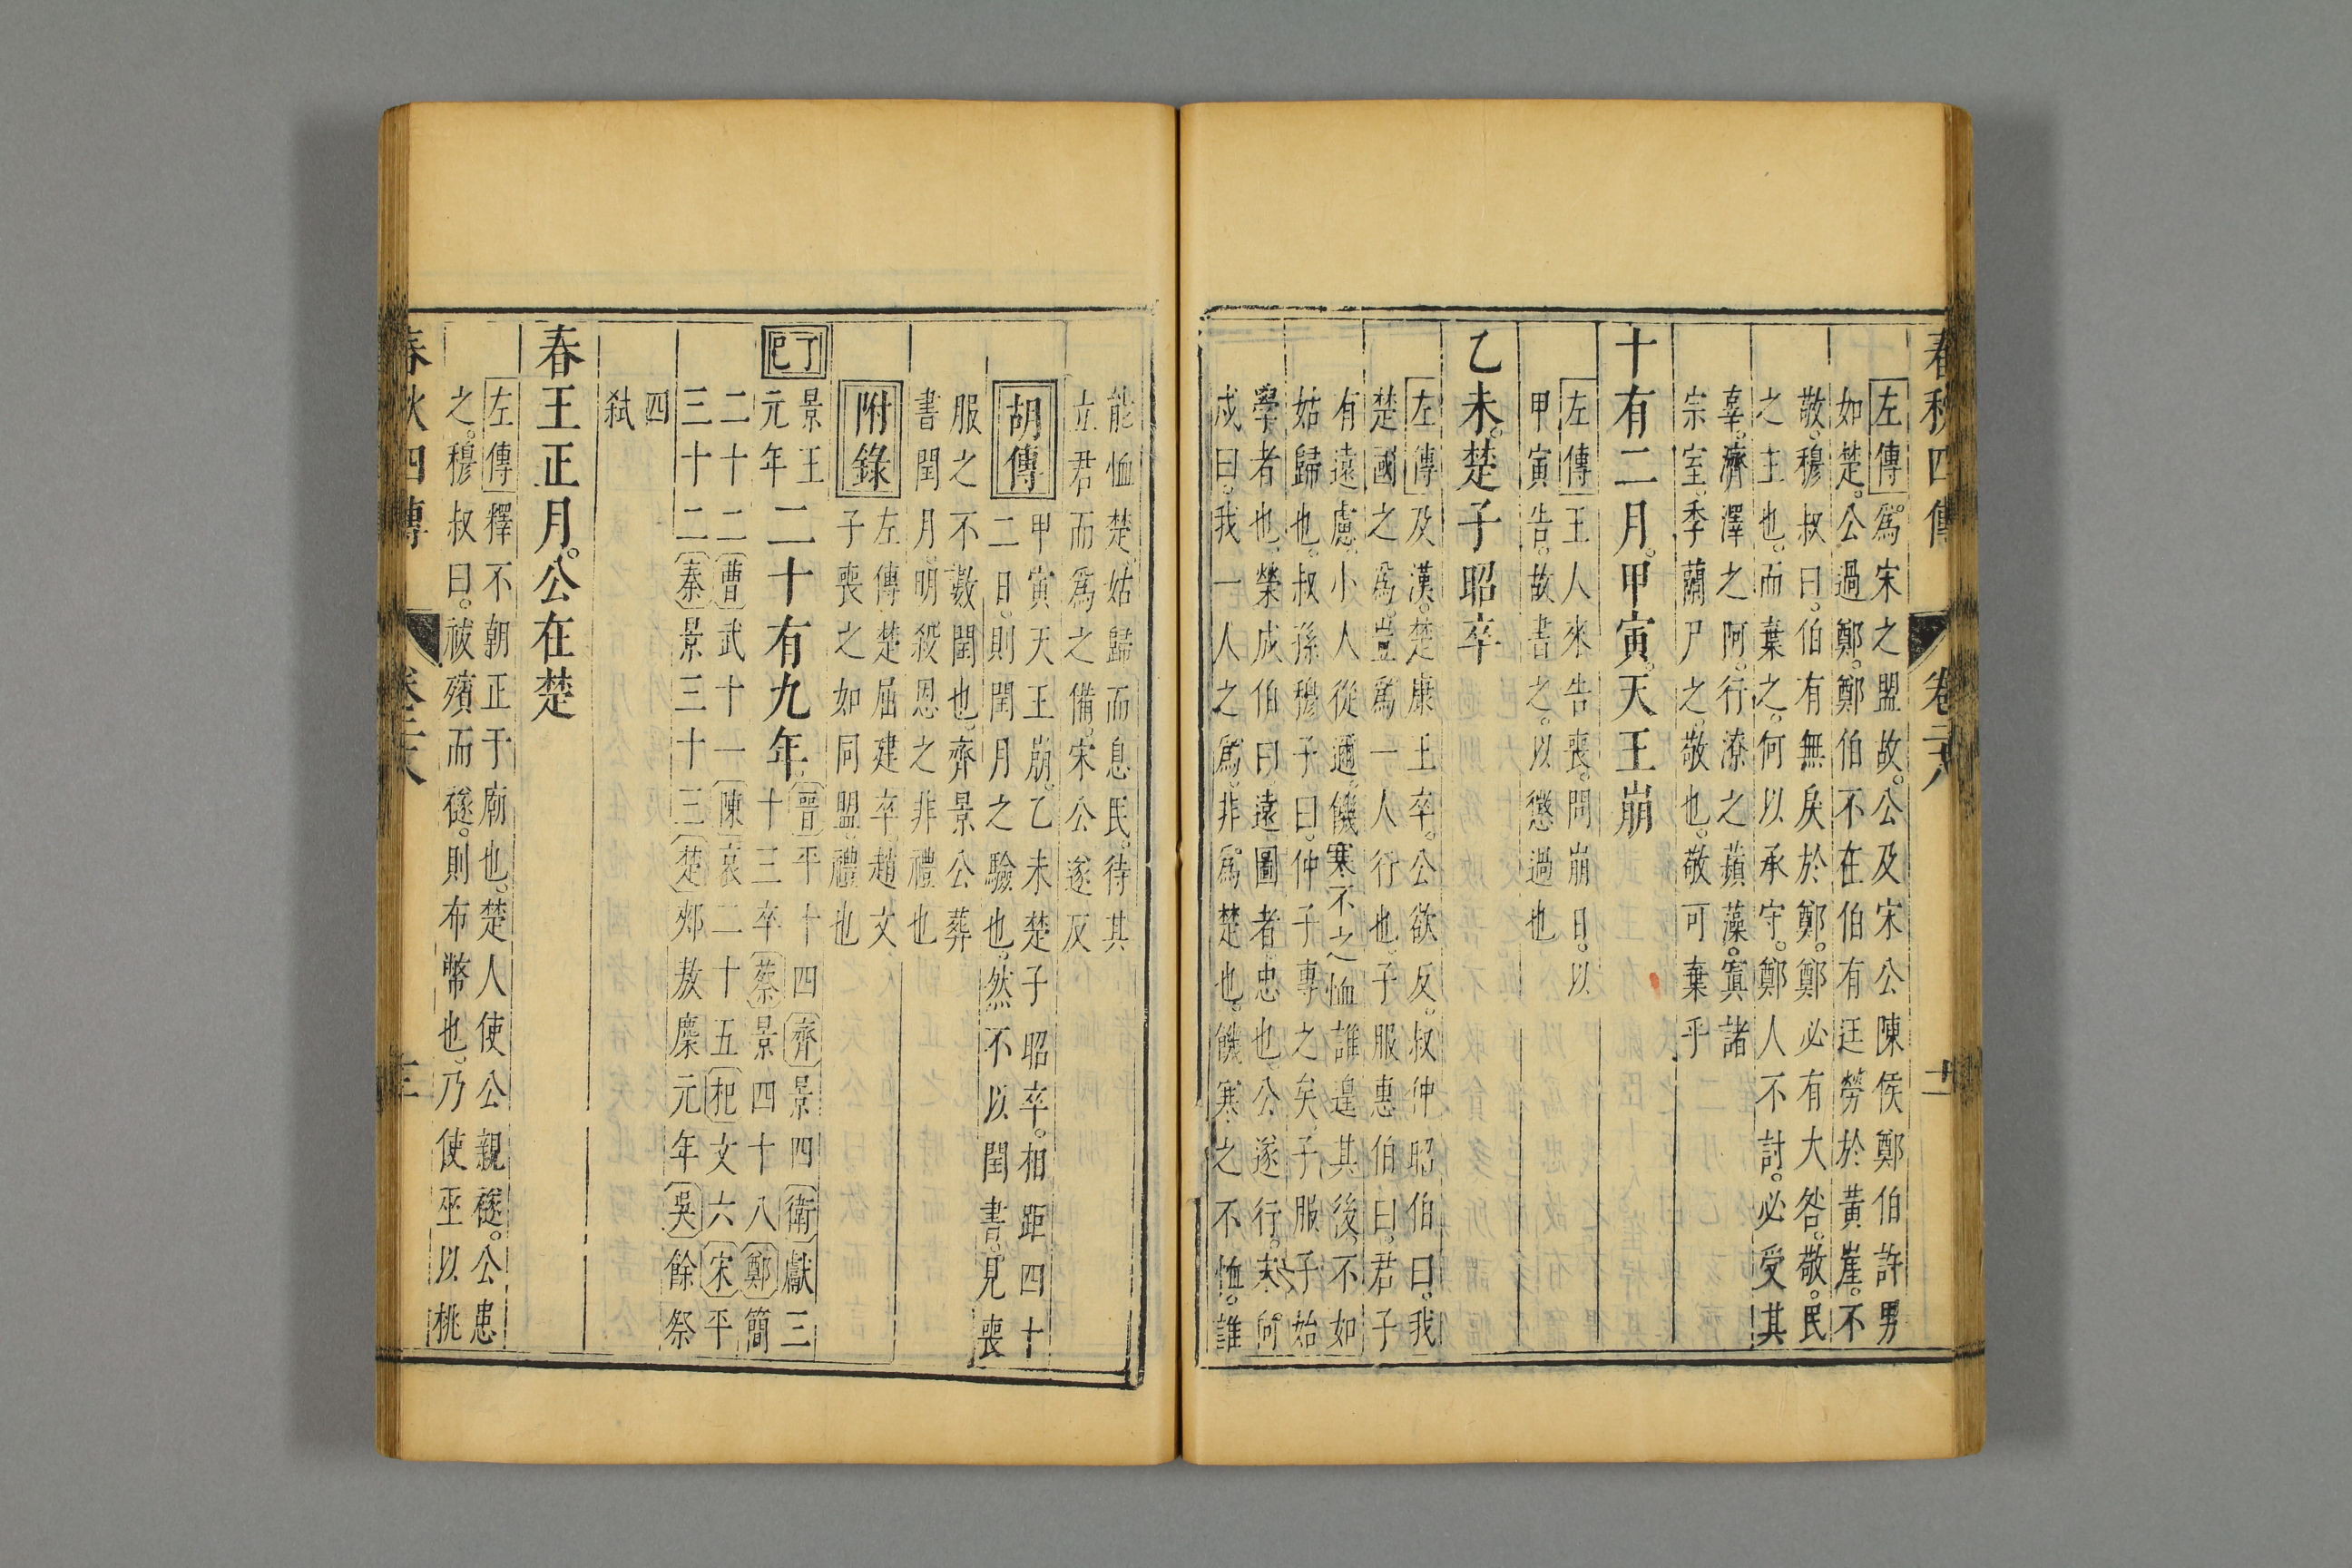 春秋四傳
卷二十八
十一
左傳爲宋之盟故。公及宋公陳侯鄭伯許男
如楚。公過鄭。鄭伯不在伯有廷勞於黃崖。不
敬。穆叔曰。伯有無戾於鄭。鄭必有大咎。敬。民
之主也。而棄之。何以承守。鄭人不討。必受其
辜。濟澤之阿。行潦之蘋藻。寘諸
宗室。季蘭尸之。敬也。敬可棄乎
十有二月。甲寅。天王崩
左傳王人來告喪。問崩日。以
甲寅告。故書之。以懲過也
乙未。楚子昭卒
左傳及漢。楚康王卒。公欲反。叔仲昭伯曰。我
楚國之爲。豈爲一人行也。子服惠伯曰。君子
有遠慮。小人從邇。饑寒不之恤誰遑其後。不如
姑歸也。叔孫穆子曰。仲子專之矣。子服子始
學者也。榮成伯曰。遠圖者。忠也。公遂行。宋向
戍曰。我一人之爲。非爲楚也。饑寒之不恤。誰
能恤楚。姑歸而息民。待其
立君而爲之備。宋公遂反
胡傳甲寅天王崩。乙未楚子昭卒。相距四十
二日。則閏月之驗也。然不以閏書。見喪
服之不數閏也。齊景公葬
書閏月。明殺恩之非禮也
附錄左傳楚屈建卒趙文
子喪之如同盟。禮也
丁巳
景王
元年
二十有九年
晉平十四齊景四衛獻三
十三卒蔡景四十八鄭簡
二十二曹武十一陳哀二十五杞文六宋平
三十二秦景三十三楚郟敖麇元年吳餘祭
四
弒
春王正月。公在楚
左傳釋不朝正于廟也。楚人使公親襚。公患
之。穆叔曰。祓殯而襚。則布幣也。乃使巫以桃
春秋四傳